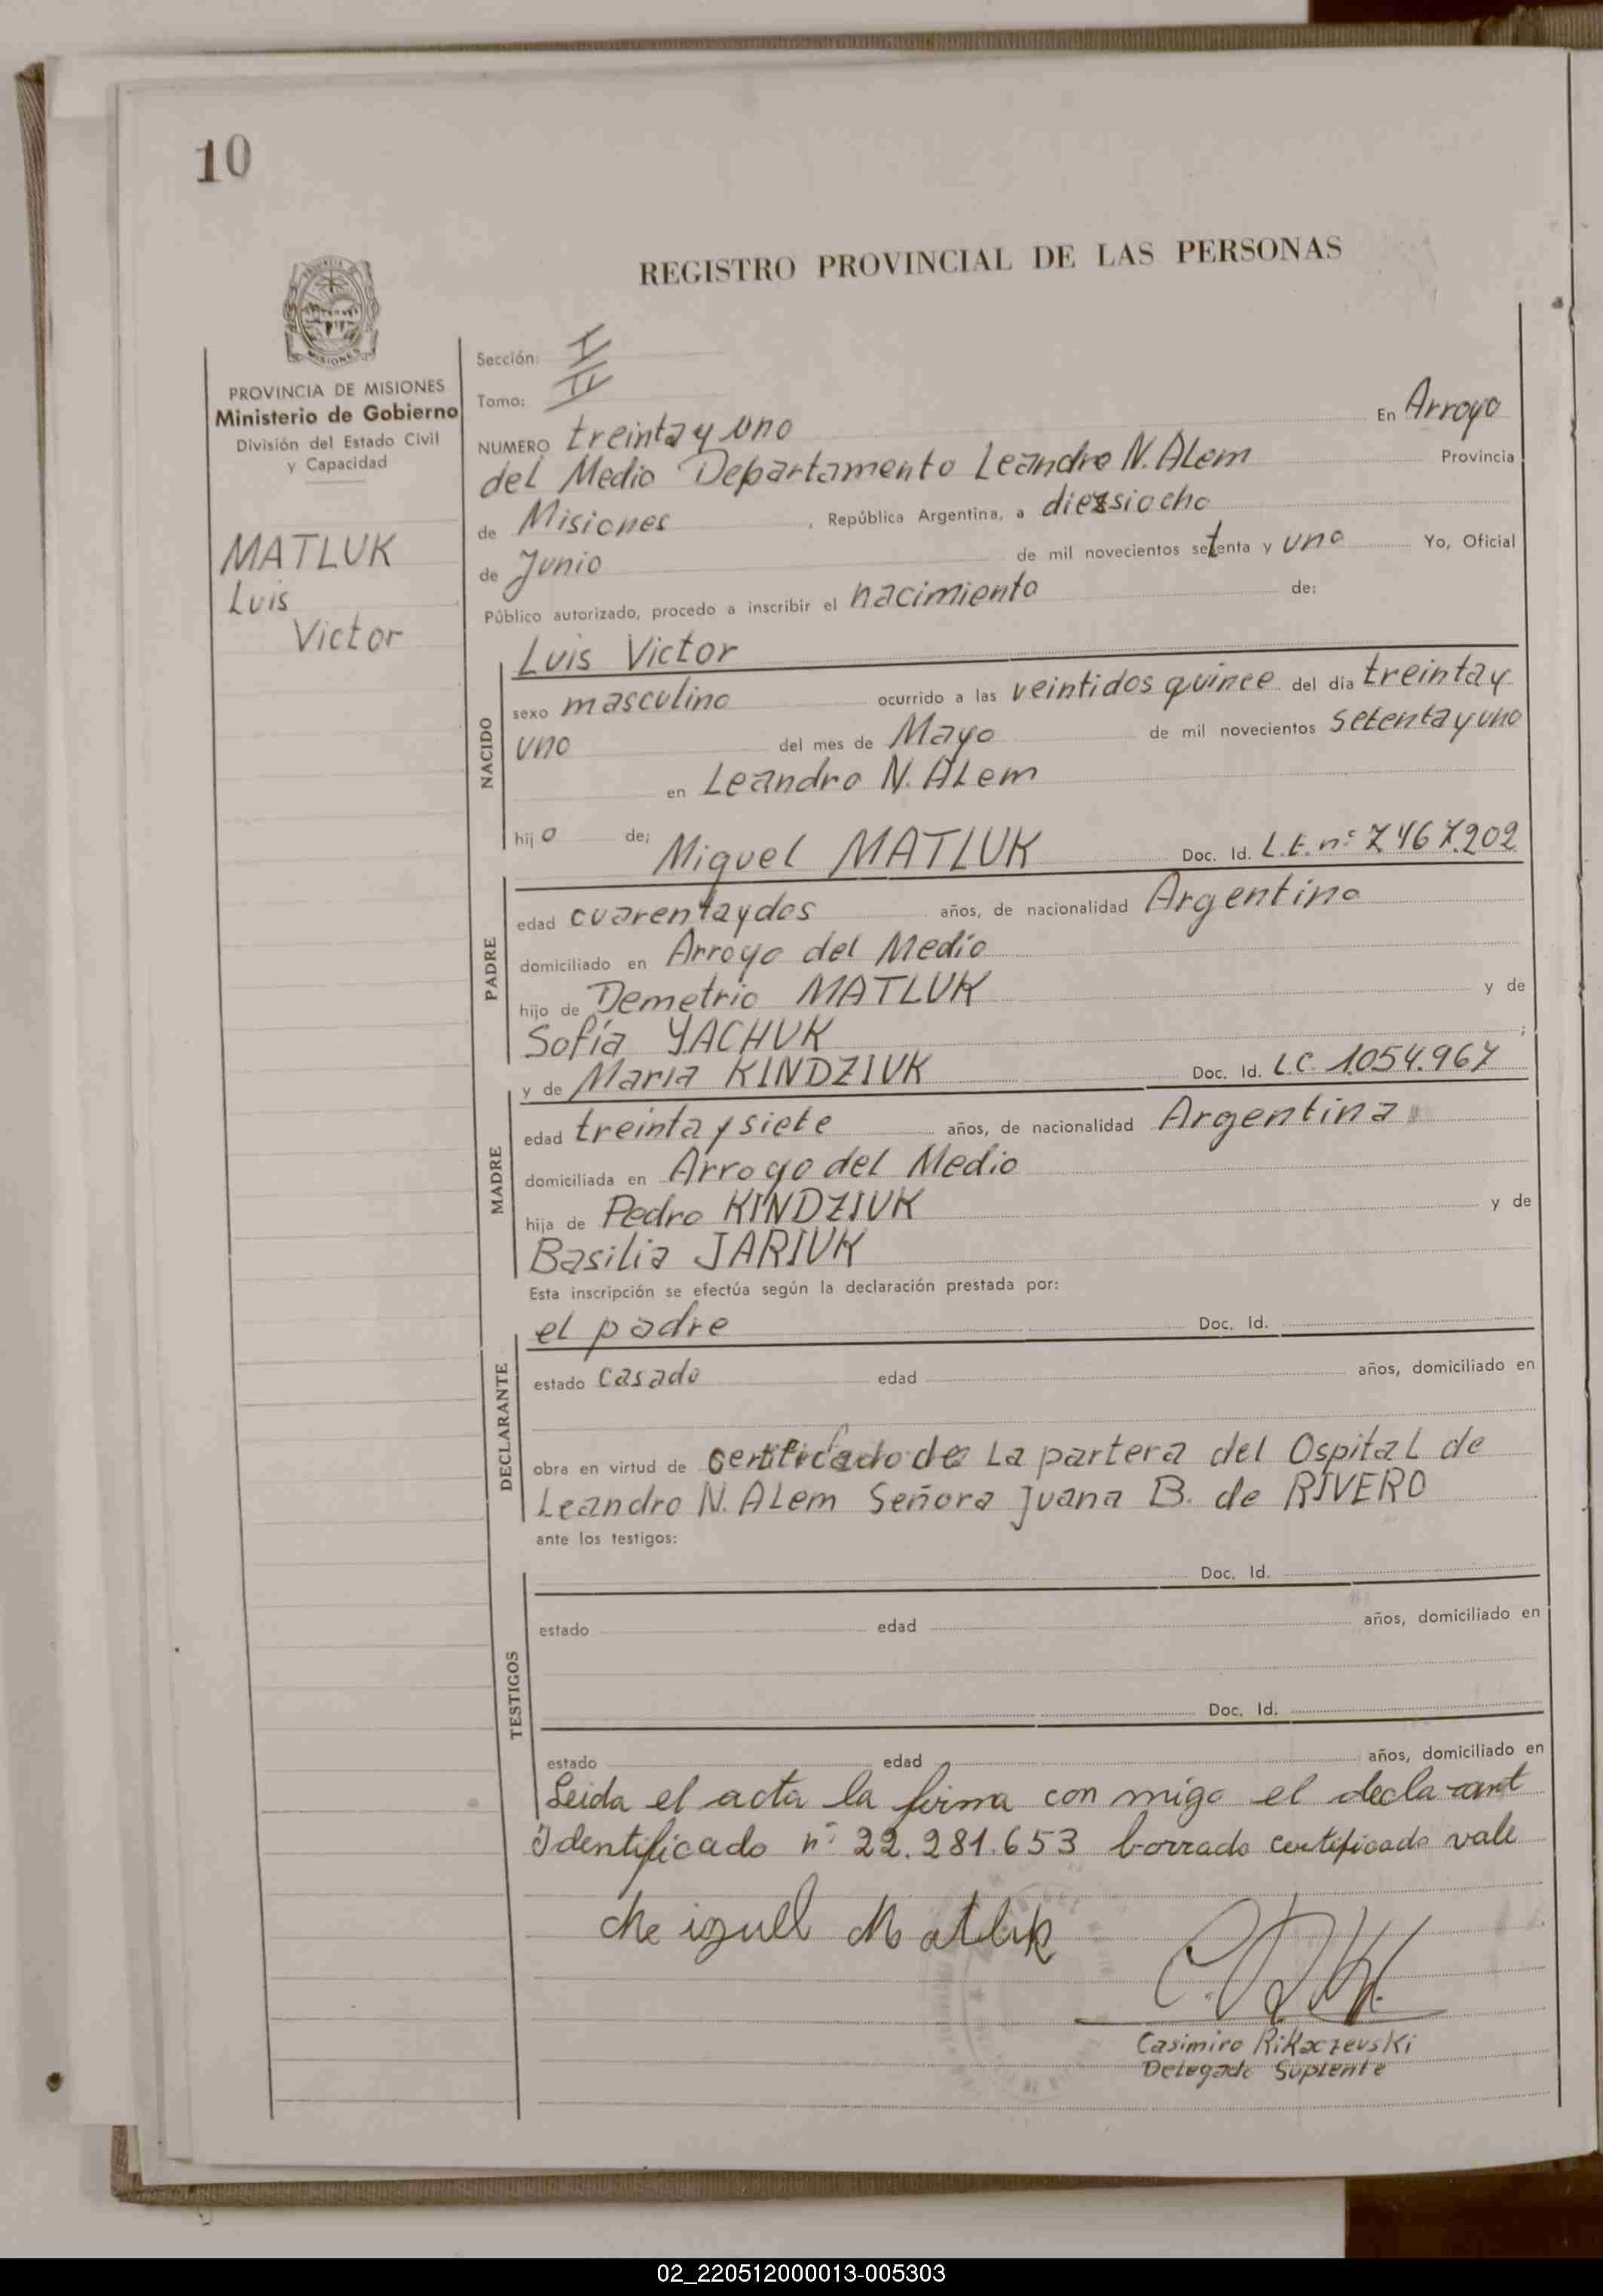 10
REGISTRO PROVINCIAL DE LAS PERSONAS
PROVINCIA DE MISIONES
Ministerio de Gobierno
División del Estado Civil
y Capacidad
MATLUK
Luis
Victor
Sección: I
Tomo: II
NUMERO treinta y uno En Arroyo
del Medio Departamento Leandro N. ALem Provincia
de Misiones, República Argentina, a diezsiocho
de Junio de mil novecientos setenta y uno Yo, Oficial
Público autorizado, procedo a inscribir el nacimiento de:
NACIDO
Luis Victor
sexo masculino ocurrido a las veintidos quince del día treinta y
uno del mes de Mayo de mil novecientos setenta y uno
en Leandro N. ALem
hijo de; Miguel MATLUK Doc. Id. L.E. nº 7.467.202
PADRE
edad cuarenta y dos años, de nacionalidad Argentino
domiciliado en Arroyo del Medio
hijo de Demetrio MATLUK y de
Sofía YACHUK ;
y de Maria KINDZIUK Doc. Id. L.C. 1.054.967
MADRE
edad treinta y siete años, de nacionalidad Argentina
domiciliada en Arroyo del Medio
hija de Pedro KINDZIUK y de
Basilia JARIUK
Esta inscripción se efectúa según la declaración prestada por:
DECLARANTE
el padre Doc. Id.
estado casado edad años, domiciliado en
obra en virtud de certificado de La partera del OspitaL de
Leandro N. ALem Señora Juana B. de RIVERO
ante los testigos:
TESTIGOS
Doc. Id.
estado edad años, domiciliado en
Doc. Id.
estado edad años, domiciliado en
Leida el acta la firma con migo el declarant
Identificado nº 22.281.653 borrado certificado vale
Meiguel Matluk
Casimiro Rikaczevski
Delegado Suplente
02_220512000013-005303